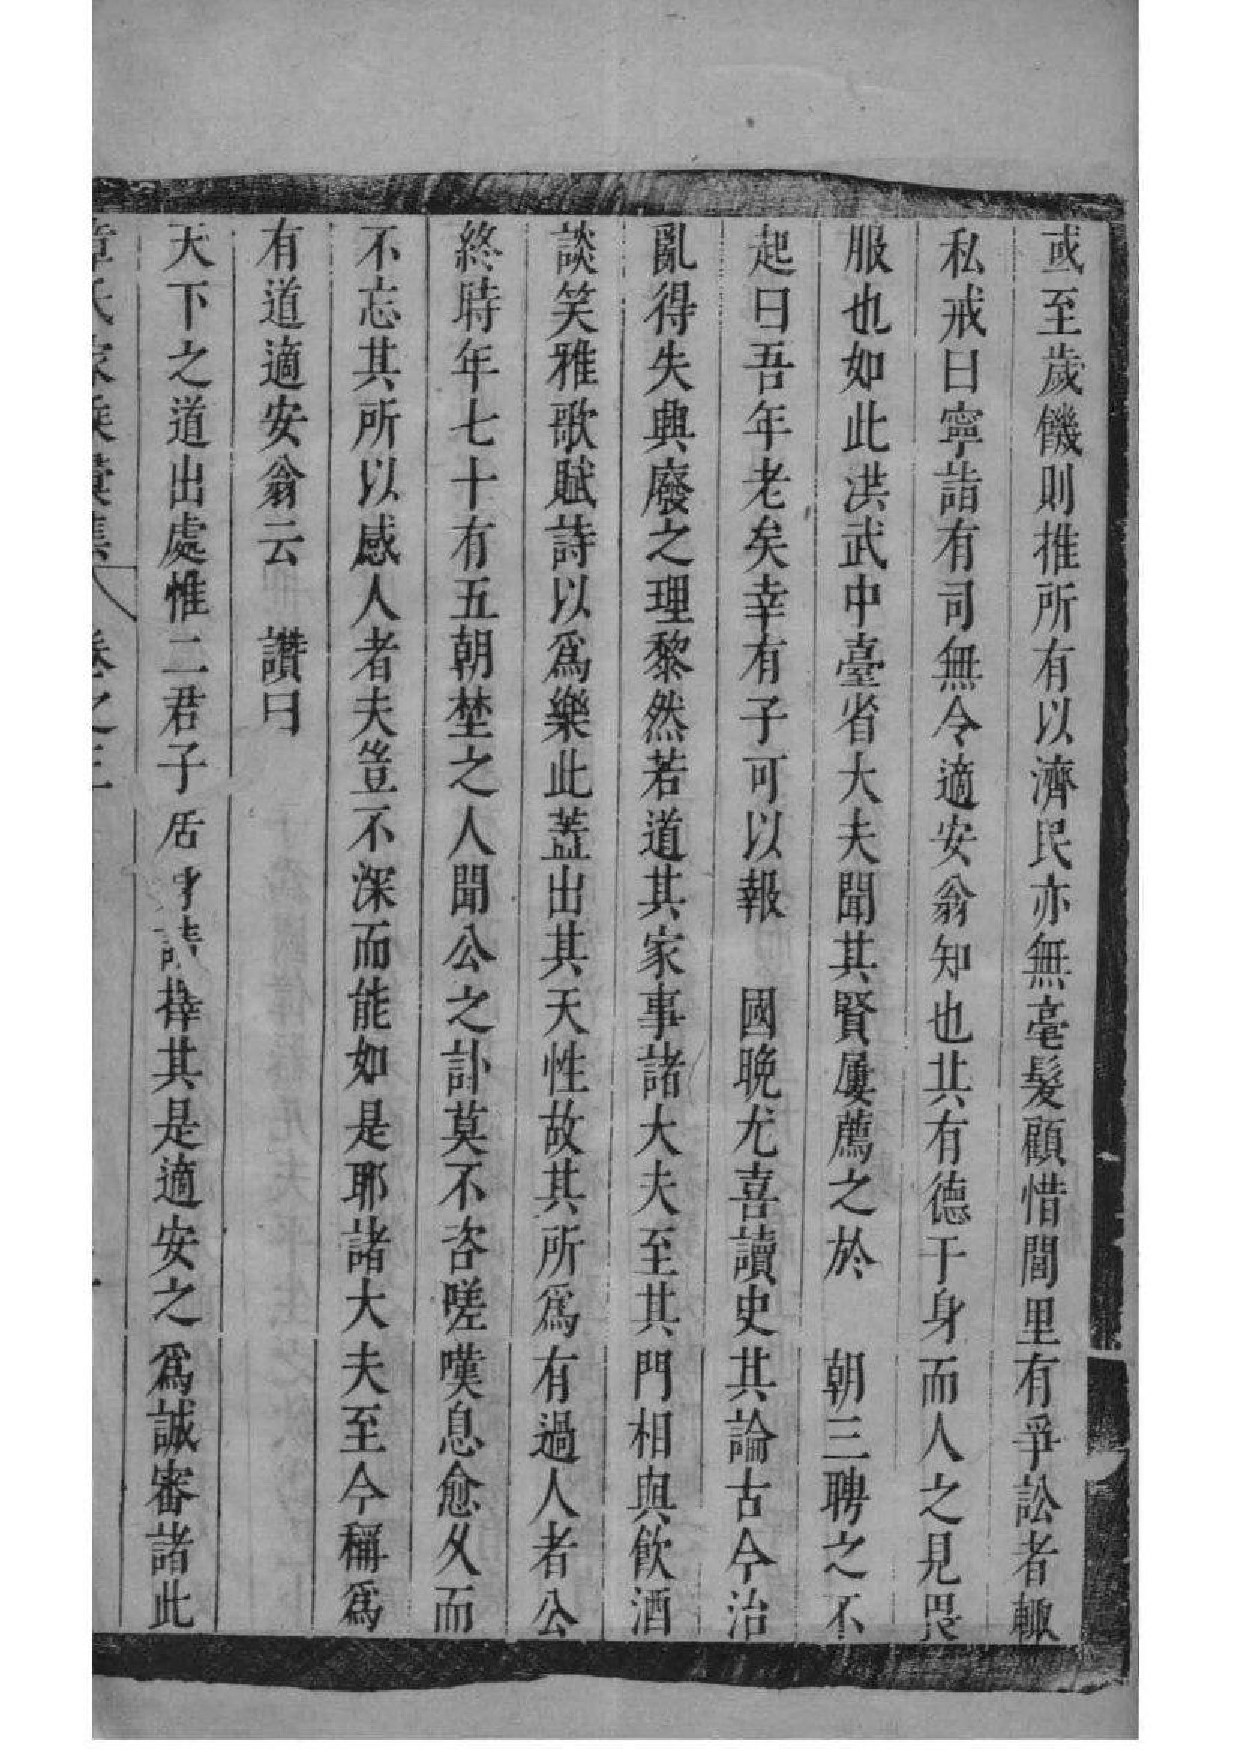 或至歲饑則推所有以濟民亦無毫髮顧惜閭里有爭訟者輙
私戒曰寧詣有司無令適安翁知也其有德于身而人之見畏
服也如此洪武中臺省大夫聞其賢屢薦之於　朝三聘之不
起曰吾年老矣幸有子可以報　國晩尤喜讀史其論古今治
亂得失興廢之理黎然若道其家事諸大夫至其門相與飲酒
談笑雅歌賦詩以爲樂此蓋出其天性故其所爲有過人者公
終時年七十有五朝埜之人聞公之訃莫不咨嗟嘆息愈久而
不忘其所以感人者夫豈不深而能如是耶諸大夫至今稱爲
有道適安翁云　讚曰
天下之道出處惟二君子居身請擇其是適安之爲誠審諸此
章氏家乘彙集　卷之三